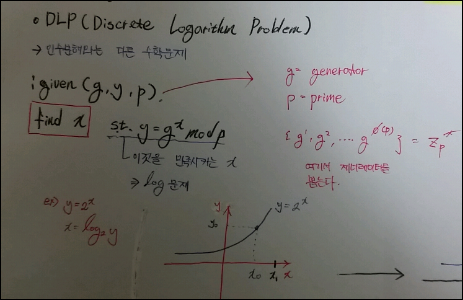 o DLP (Discrete Logarithm Problem)
→ 인수분해와는 다른 수학문제
given (g, y, p).
g = generator
p = prime
find x
s.t. y = g^x mod p
{ g^1, g^2, .... g^ø(p) } = Z_p^*
이것을 만족시키는 x
⇒ log 문제
여기서 제너레이터를
뽑는다.
ex) y = 2^x
x = log_2 y
y
y = 2^x
y_0
x_0 x_1 x